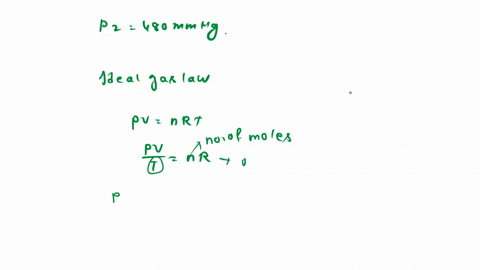 P2 = 480 mmHg.
Ideal gas law
PV = nRT
no. of moles
PV/T = nR →
P